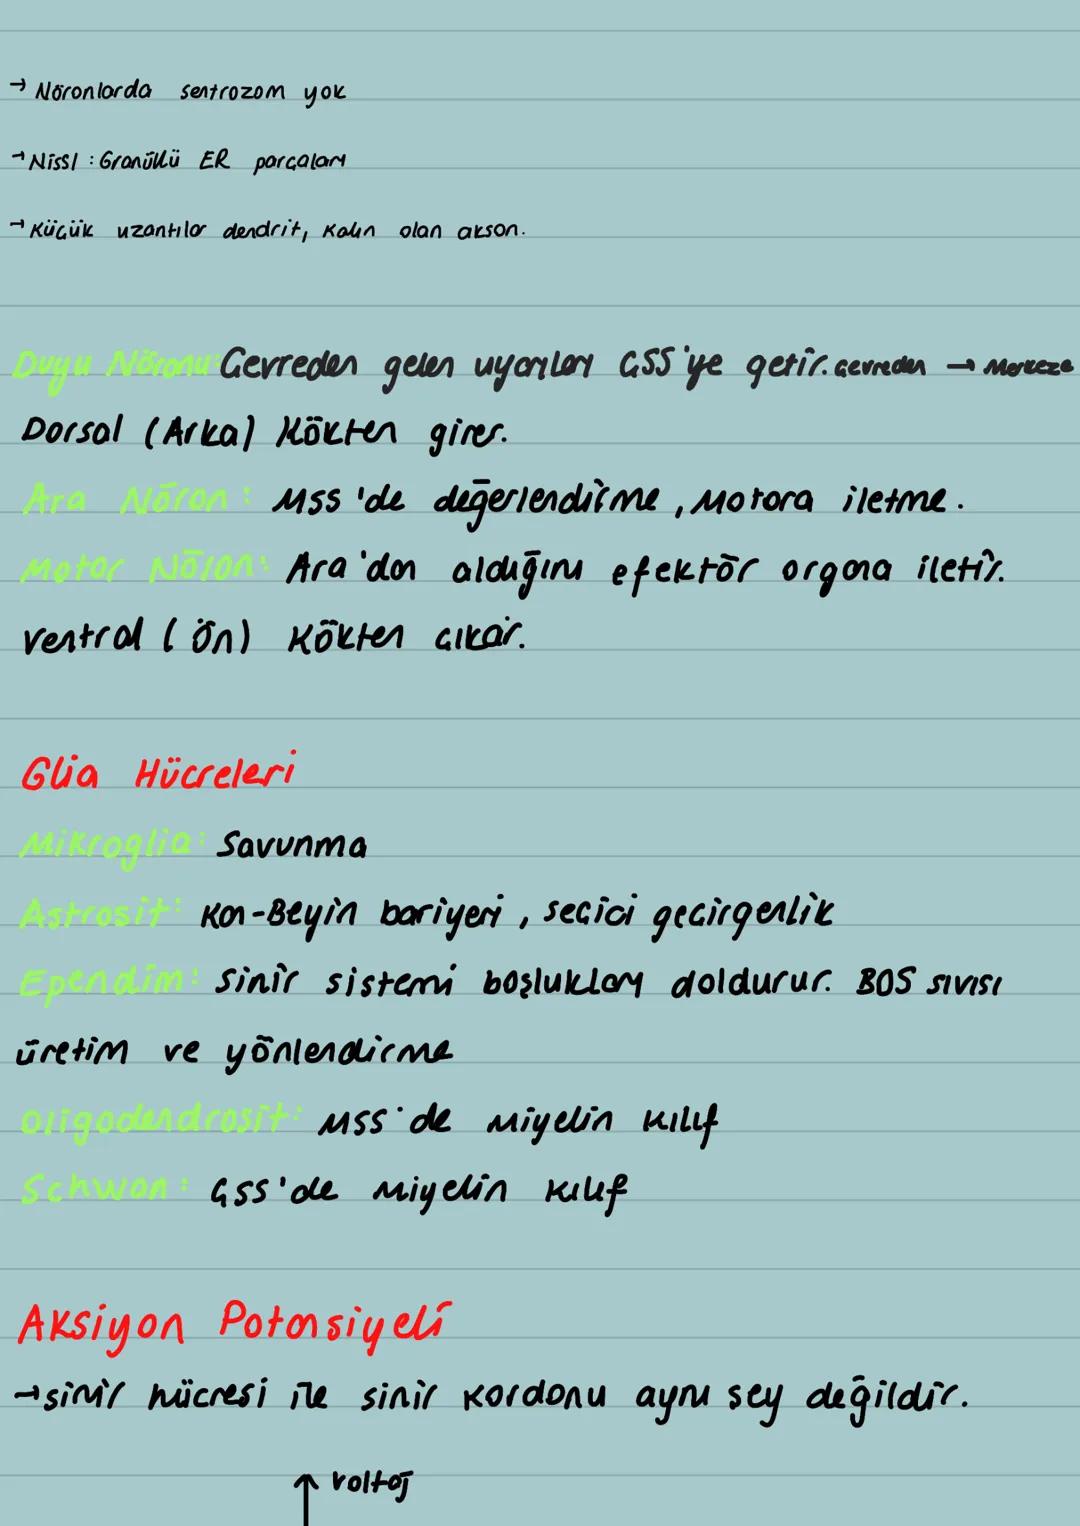 → Nöronlarda sentrozom yok
→ Nissl : Granüllü ER parçaları
→ Küçük uzantılar dendrit, kalın olan akson.
Duyu Nöronu: Çevreden gelen uyarıları ÇSS'ye getir. Çevreden → Merkeze
Dorsal (Arka) Kökten girer.
Ara Nöron : MSS 'de değerlendirme, Motora iletme.
Motor Nöron: Ara'dan aldığını efektör organa iletir.
Ventral (Ön) Kökten çıkar.
Glia Hücreleri
Mikroglia: Savunma
Astrosit: Kan-Beyin bariyeri, seçici geçirgenlik
Ependim: Sinir sistemi boşlukları doldurur. BOS sıvısı
üretim ve yönlendirme
Oligodendrosit: MSS'de Miyelin kılıf
Schwan: ÇSS'de Miyelin kılıf
Aksiyon Potansiyeli
→ sinir hücresi ile sinir kordonu aynı şey değildir.
↑ voltaj